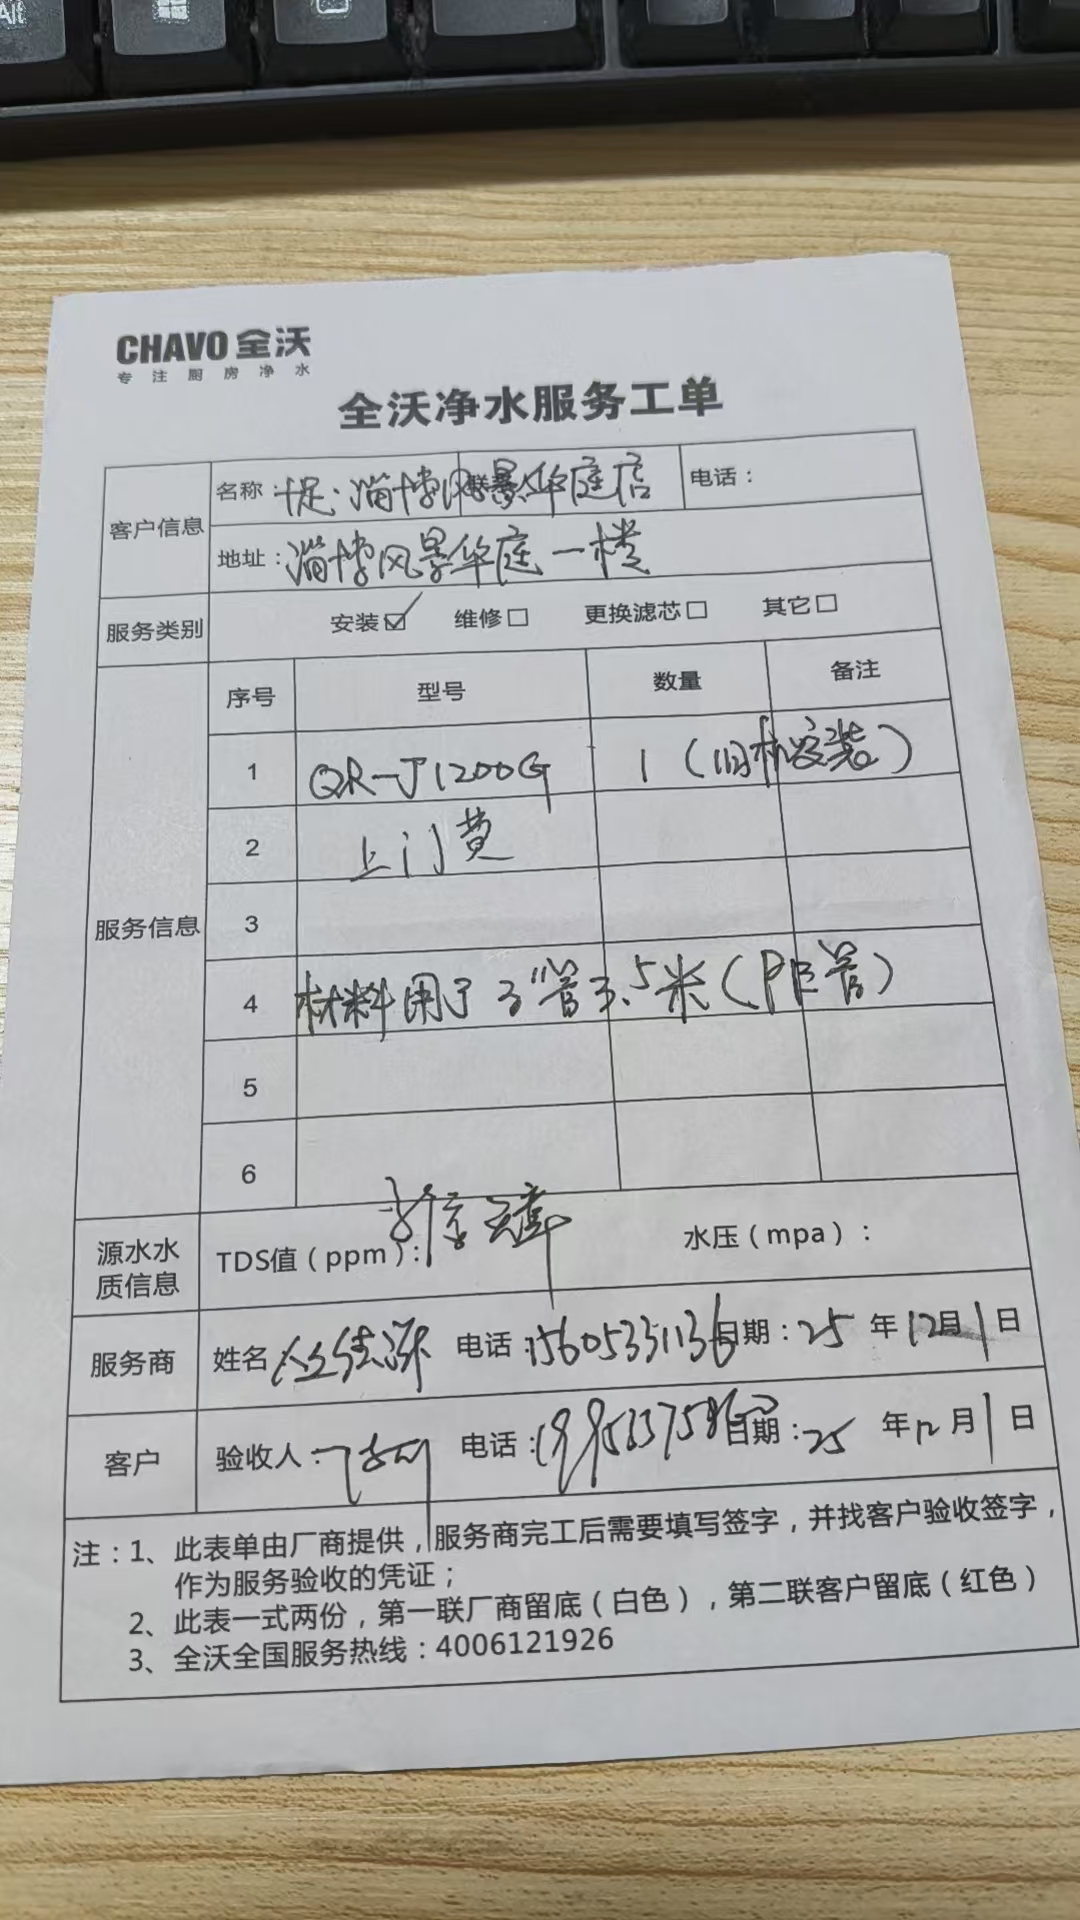 Alt
CHAVO 全沃
专注厨房净水
全沃净水服务工单
客户信息
名称：十足·淄博风景华庭店
电话：
地址：淄博风景华庭一楼
服务类别
安装☑ 维修□ 更换滤芯□ 其它□
服务信息
序号 型号 数量 备注
1 QR-J1200G 1（旧机安装）
2 上门费
3
4 材料用了3"管3.5米（PE管）
5
6
源水水质信息
TDS值（ppm）： 水压（mpa）：
服务商 姓名 电话：15605331136 日期：25年12月1日
客户 验收人： 电话： 日期：25年12月1日
注：1、此表单由厂商提供，服务商完工后需要填写签字，并找客户验收签字，
作为服务验收的凭证；
2、此表一式两份，第一联厂商留底（白色），第二联客户留底（红色）
3、全沃全国服务热线：4006121926